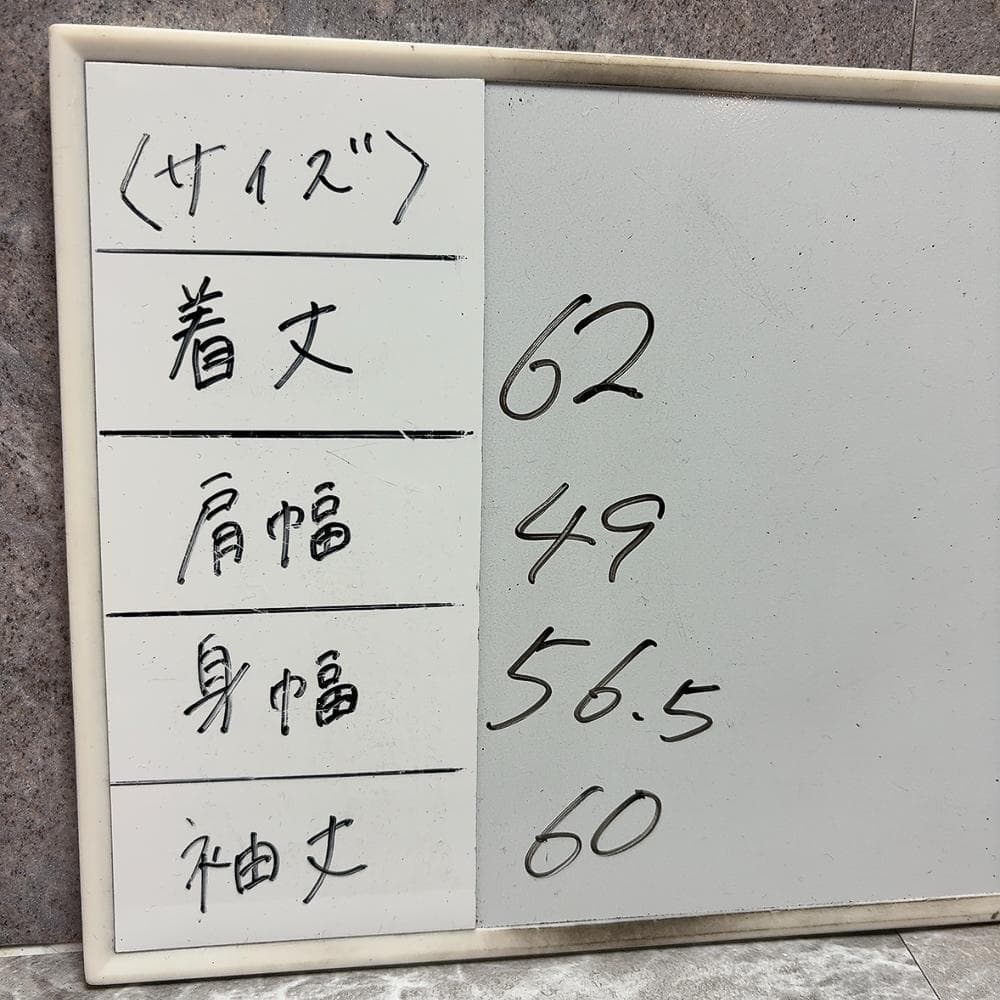 〈サイズ〉
着丈 62
肩幅 49
身幅 56.5
袖丈 60